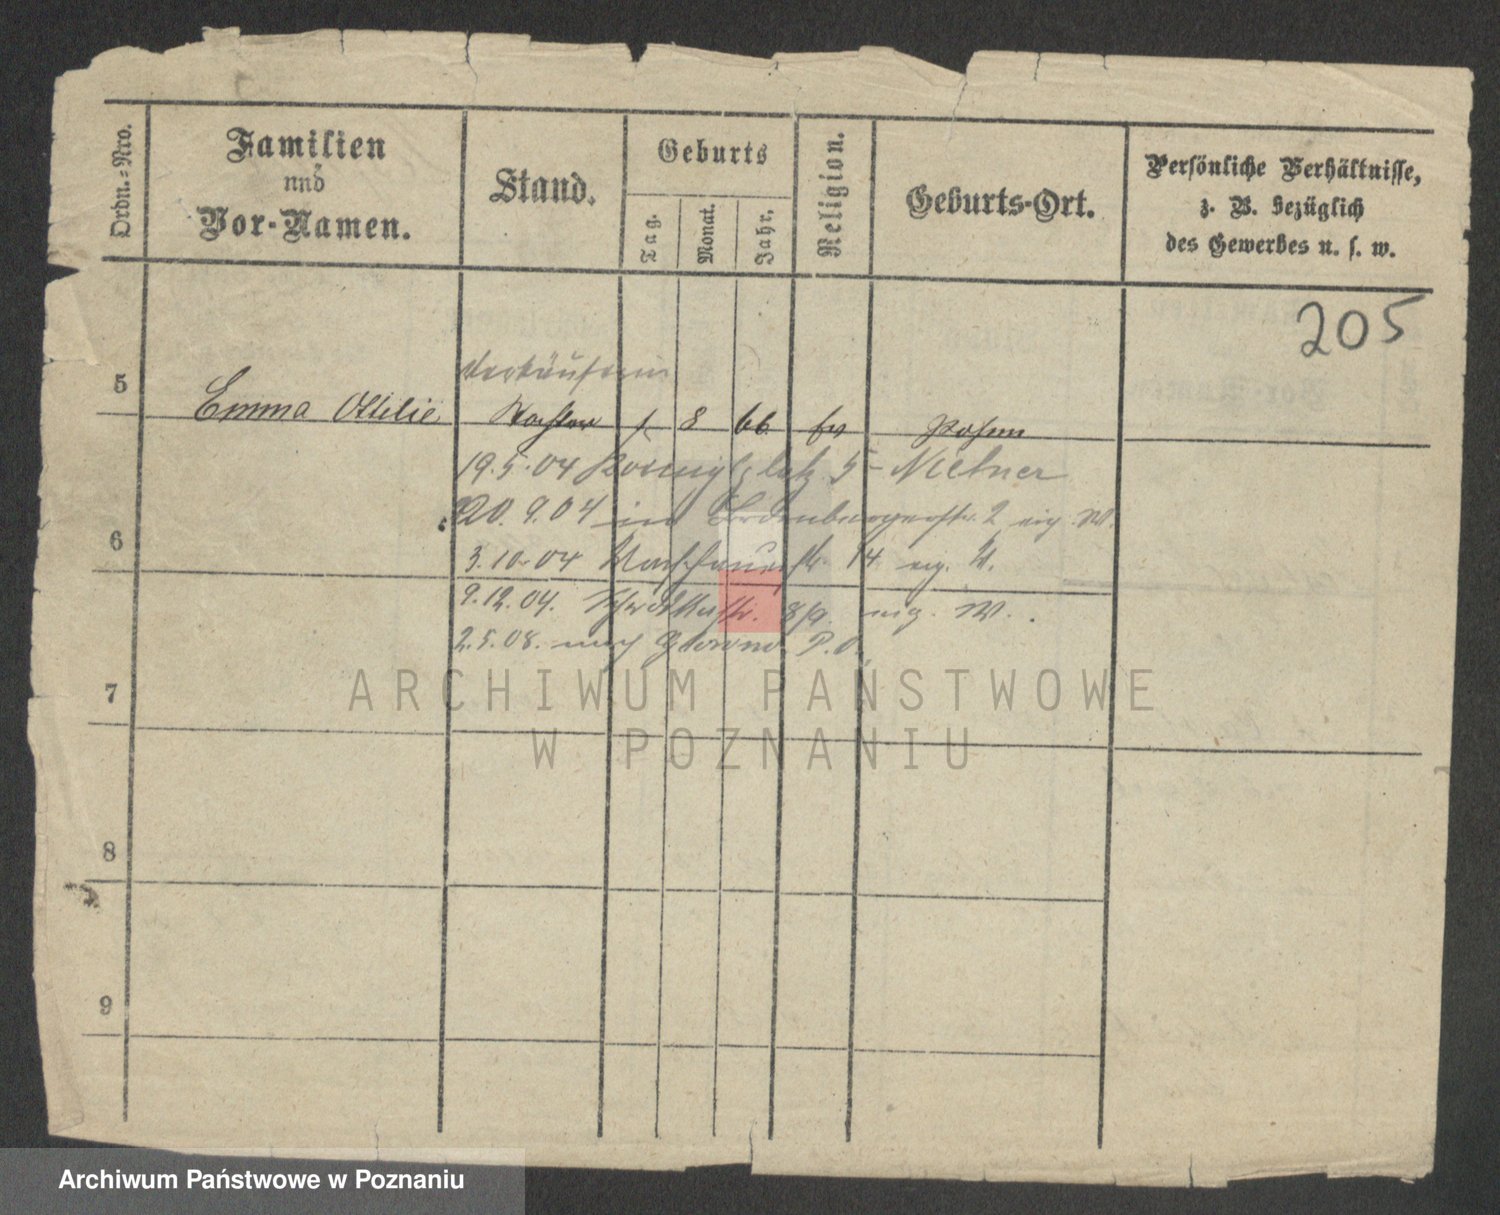 Ordn.-Nro.
Familien
und
Vor-Namen.
Stand.
Geburts
Tag.
Monat.
Jahr.
Religion.
Geburts-Ort.
Persönliche Verhältnisse,
z. B. bezüglich
des Gewerbes u. s. w.
205
Verkäuferin
5
Emma Ottilie Tochter 1 8 66 ev Posen
19.5.04 5 - Meltner
20.9.04 in 2 eig. W.
6
3.10.04 Warschauerstr. 14 eig. W.
9.12.04. str. 8/9. eig. W.
2.5.08. nach P.O.
7
ARCHIWUM PAŃSTWOWE
W POZNANIU
8
9
Archiwum Państwowe w Poznaniu